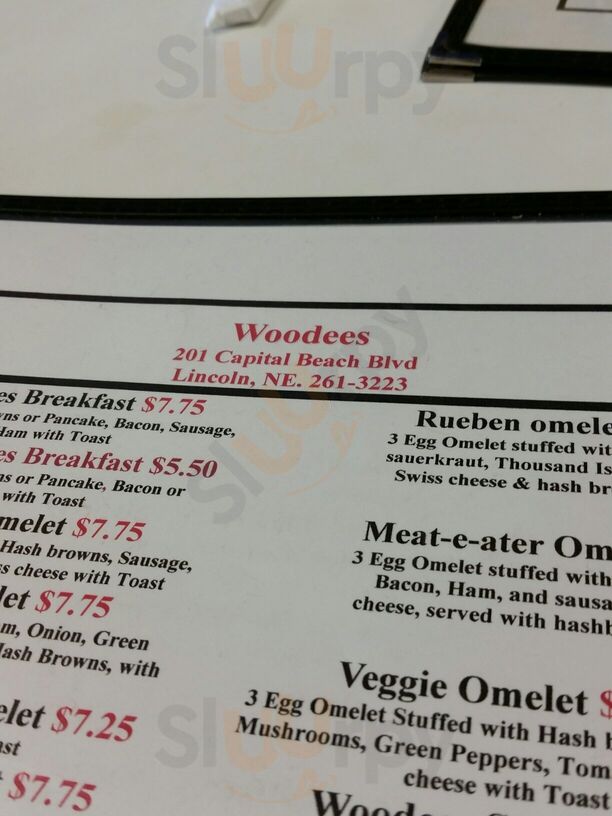 Woodees
201 Capital Beach Blvd
Lincoln, NE. 261-3223
Breakfast $7.75
or Pancake, Bacon, Sausage,
Ham with Toast
Breakfast $5.50
or Pancake, Bacon or
with Toast
$7.75
Hash browns, Sausage,
cheese with Toast
$7.75
Onion, Green
Hash Browns, with
$7.25
$7.75
Rueben
3 Egg Omelet stuffed
sauerkraut, Thousand
Swiss cheese & hash
Meat-e-ater
3 Egg Omelet stuffed with
Bacon, Ham, and
cheese, served with
Veggie Omelet $
3 Egg Omelet Stuffed with Hash
Mushrooms, Green Peppers,
cheese with Toast
Sluurpy
Sluurpy
Sluurpy